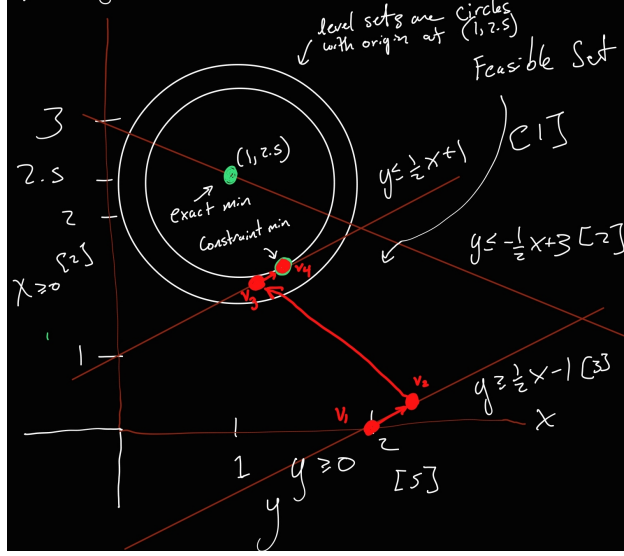 level sets are circles
with origin at (1,2.5)
Feasible Set
3
(1,2.5)
y≤½x+1
[1]
2.5
exact min
2
constraint min
y≤-½x+3 [2]
[2]
x≥0
v4
v3
1
v2
y≥½x-1 [3]
V1
x
2
1
y≥0
[5]
y